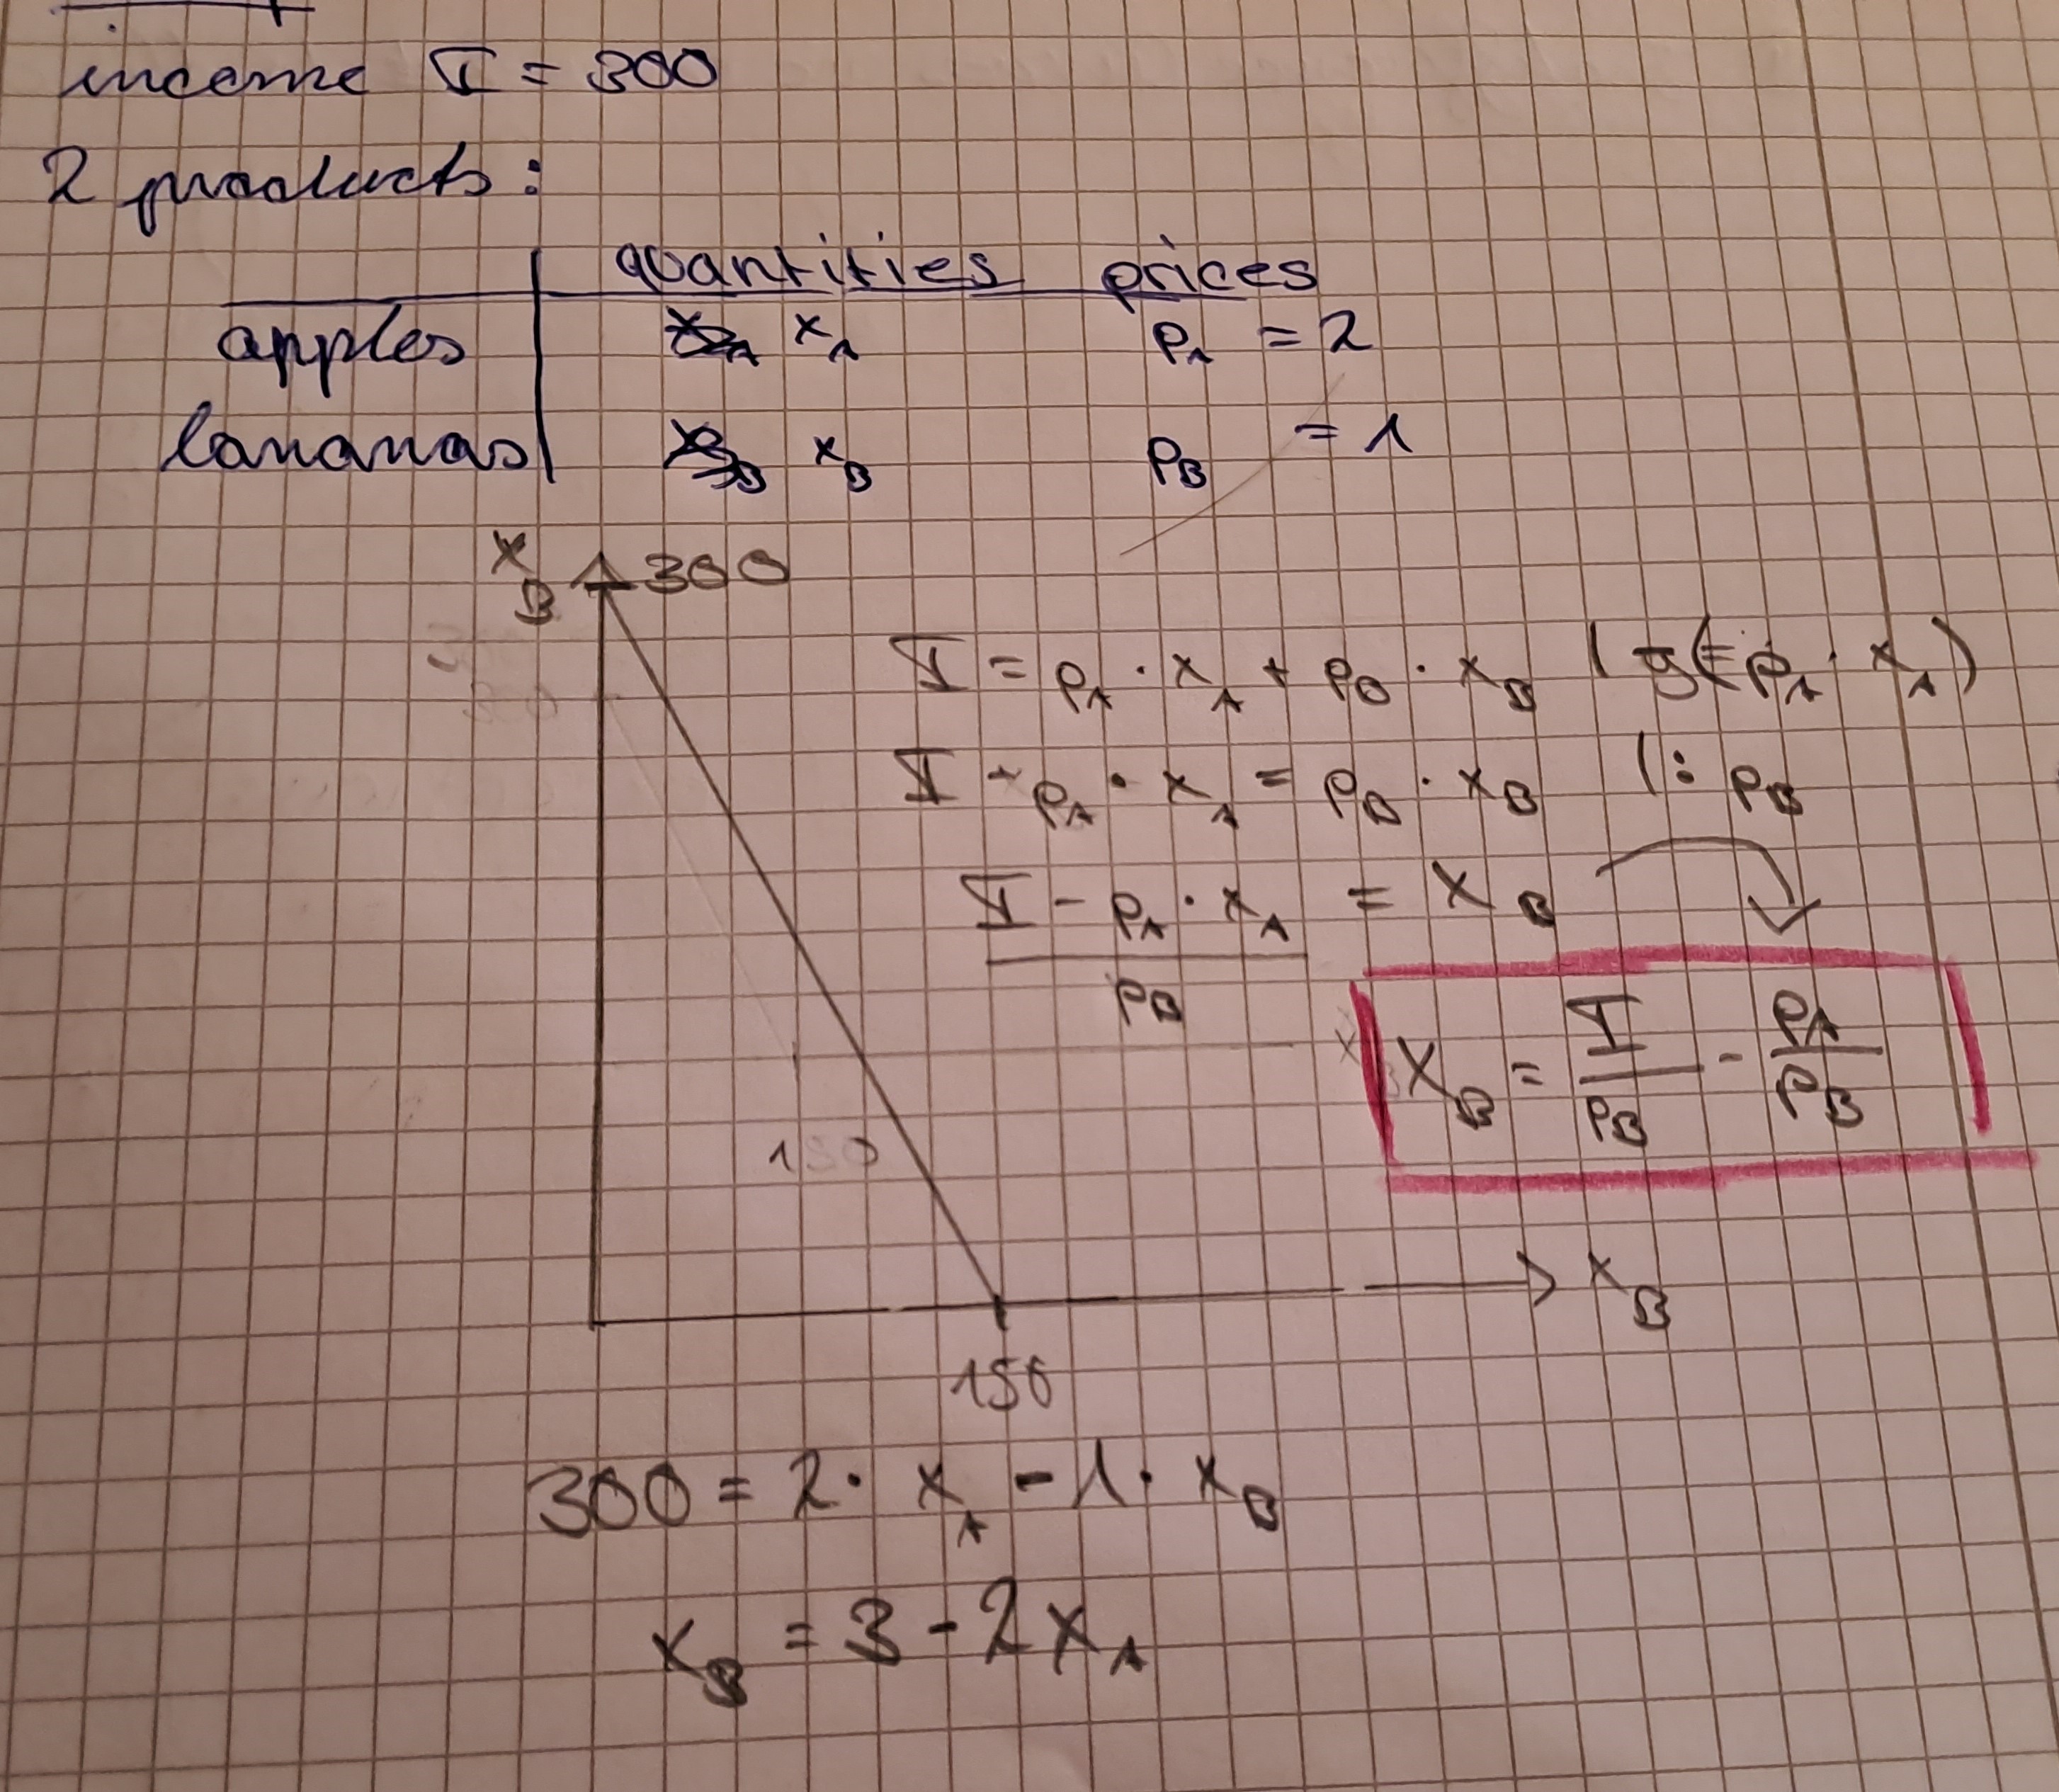 income I = 300
2 products:
quantities prices
apples x_A p_A = 2
bananas x_B p_B = 1
x_B 300
I = p_A · x_A + p_B · x_B | (= p_A · x_A)
I - p_A · x_A = p_B · x_B | : p_B
I - p_A · x_A = x_B
p_B
x_B = I/p_B - p_A/p_B
150
x_B
150
300 = 2 · x_A - 1 · x_B
x_B = 3 - 2x_A